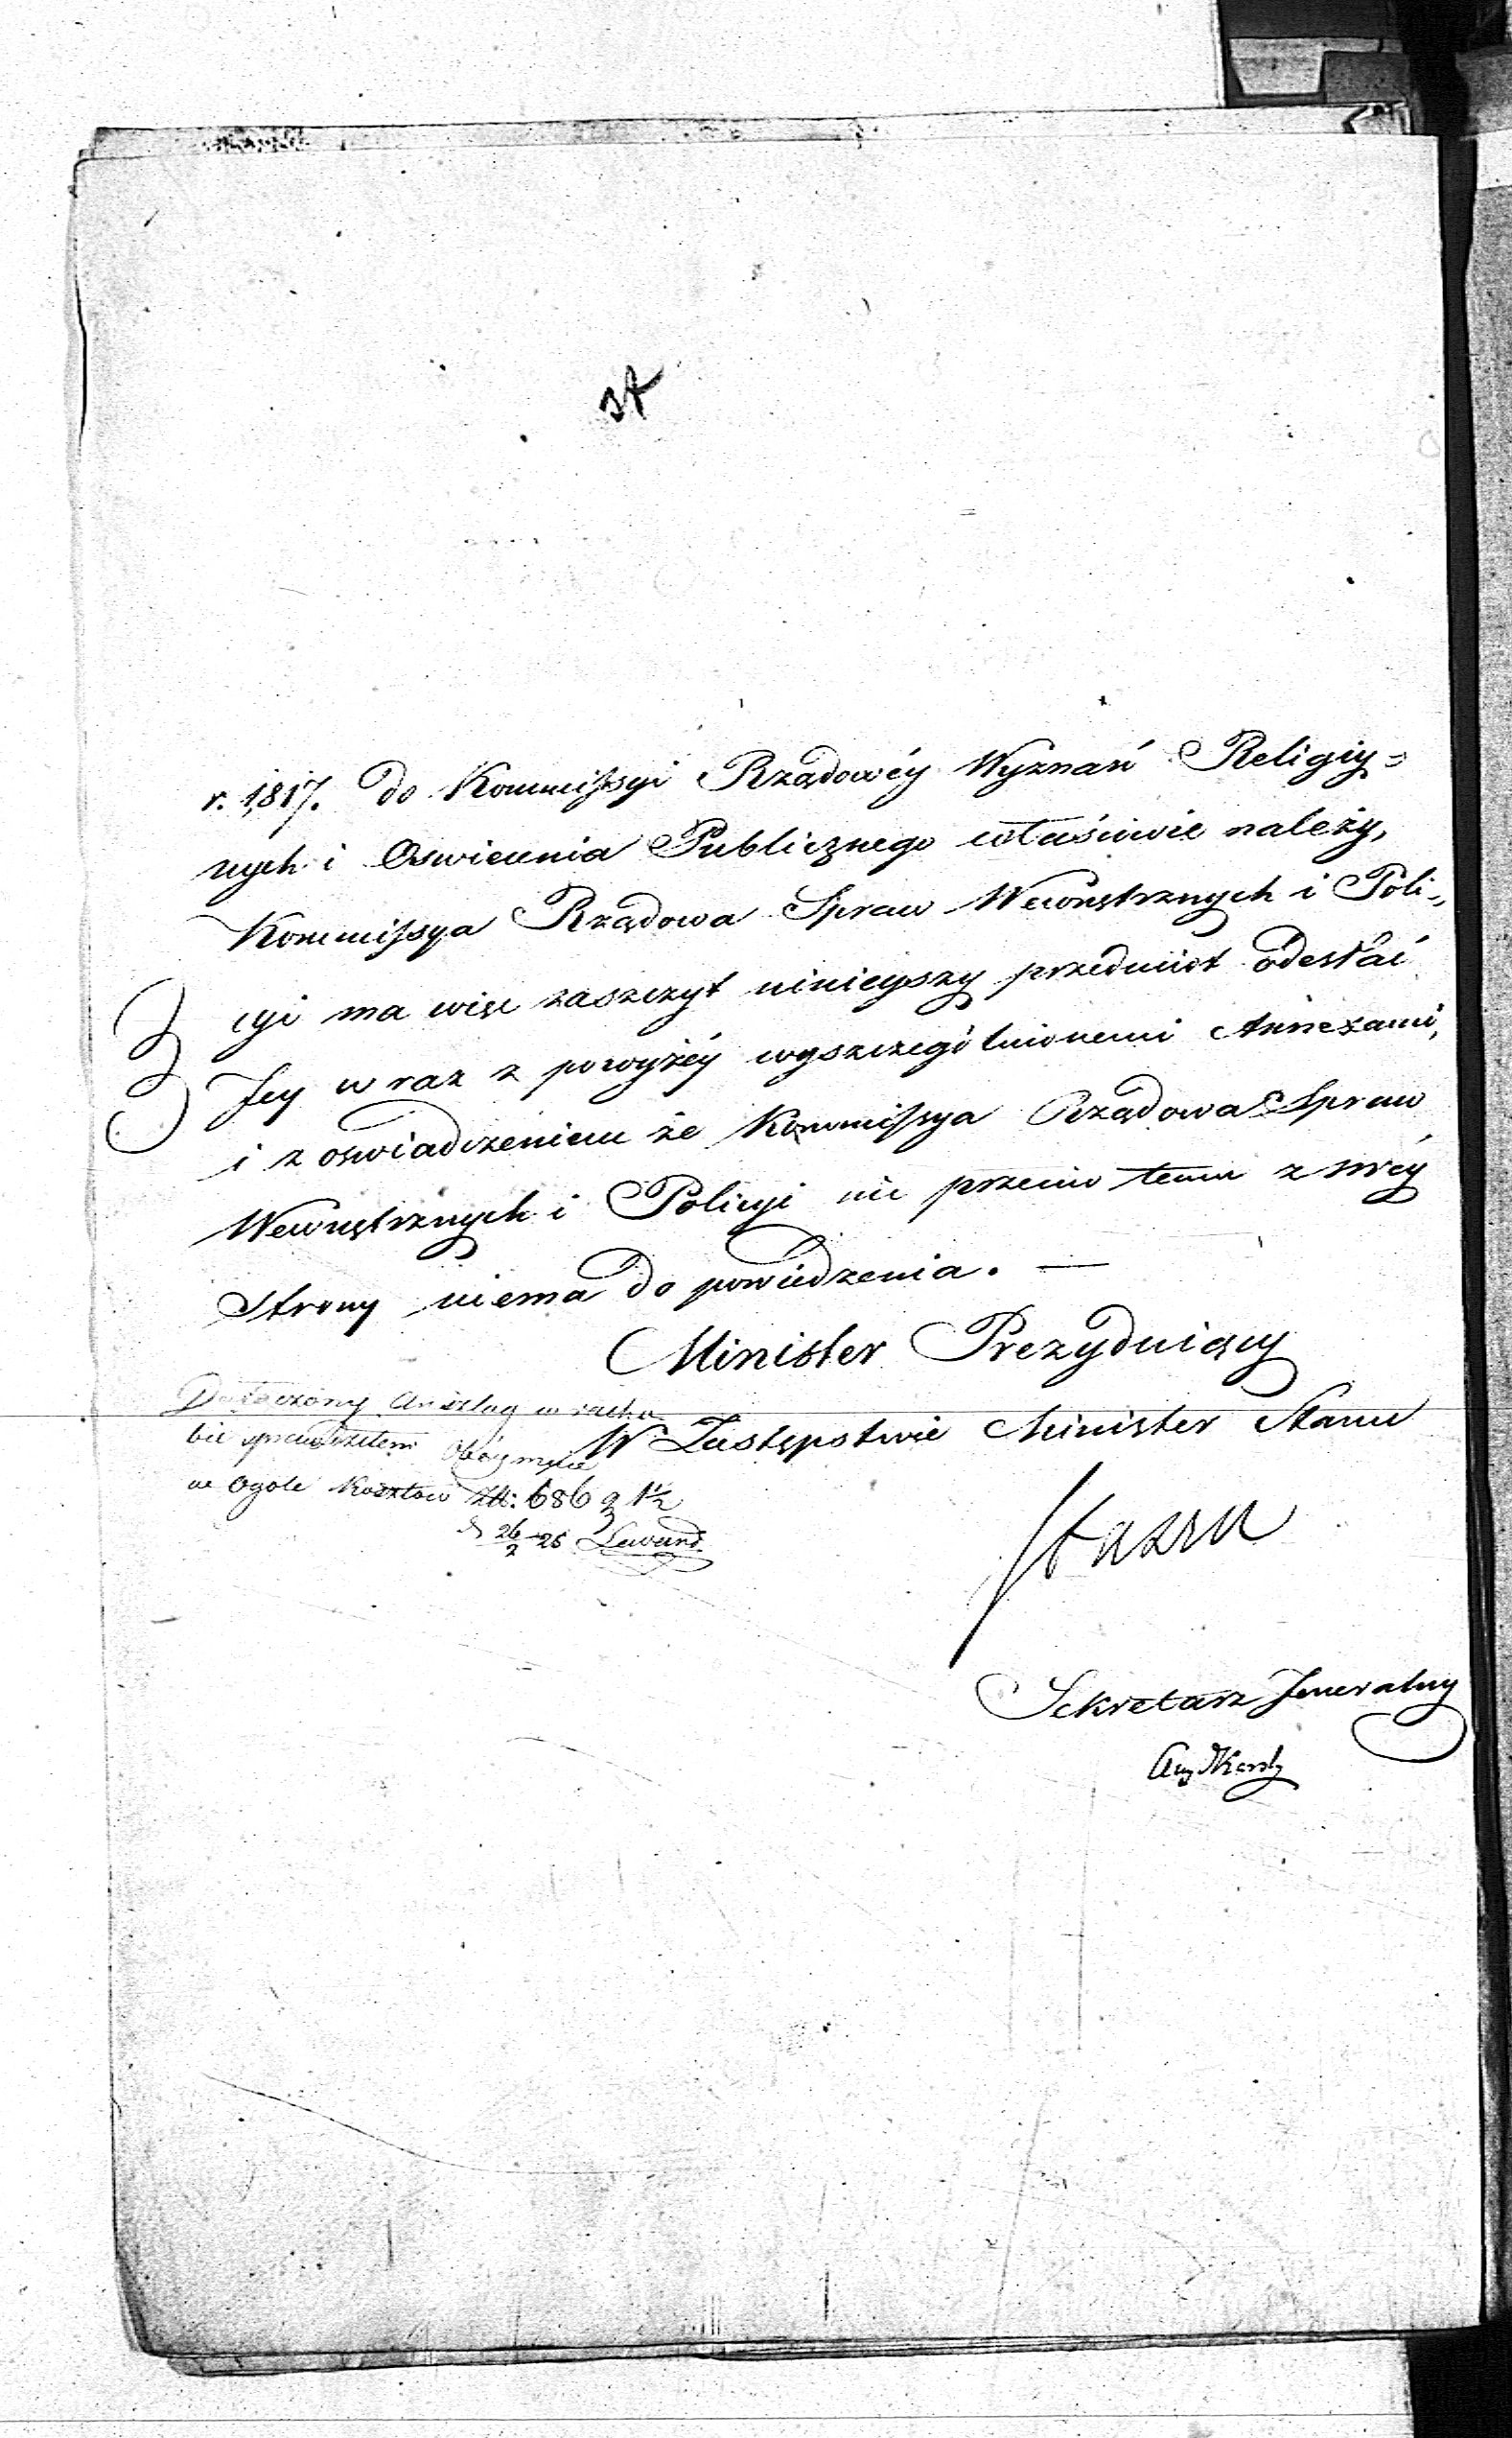 r. 1,817. do Kommissyi Rządowéy Wyznań Religiy=
nych i Oswiecenia Publicznego właściwie należy,
Kommissya Rządowa Spraw Wewnętrznych i Poli„
cyi ma więc zaszczyt ninieyszy przedmiot odesłać
Jey wraz z powyżéy wyszczególnionemi Annexami,
i z oswiadczeniem że Kommissya Rządowa Spraw
Wewnętrznych i Policyi nic przeciw temu z swéy
strony niema do powiedzenia. —
Minister Prezyduiący
W Zastępstwie Minister Stanu
Staszic
Dołączony Anszlag w rachu
bie sprawdziłem Obeymuie
w Ogole Kosztow Zł: 686 g 1½
d 26/2 25
Sekretarz Jeneralny